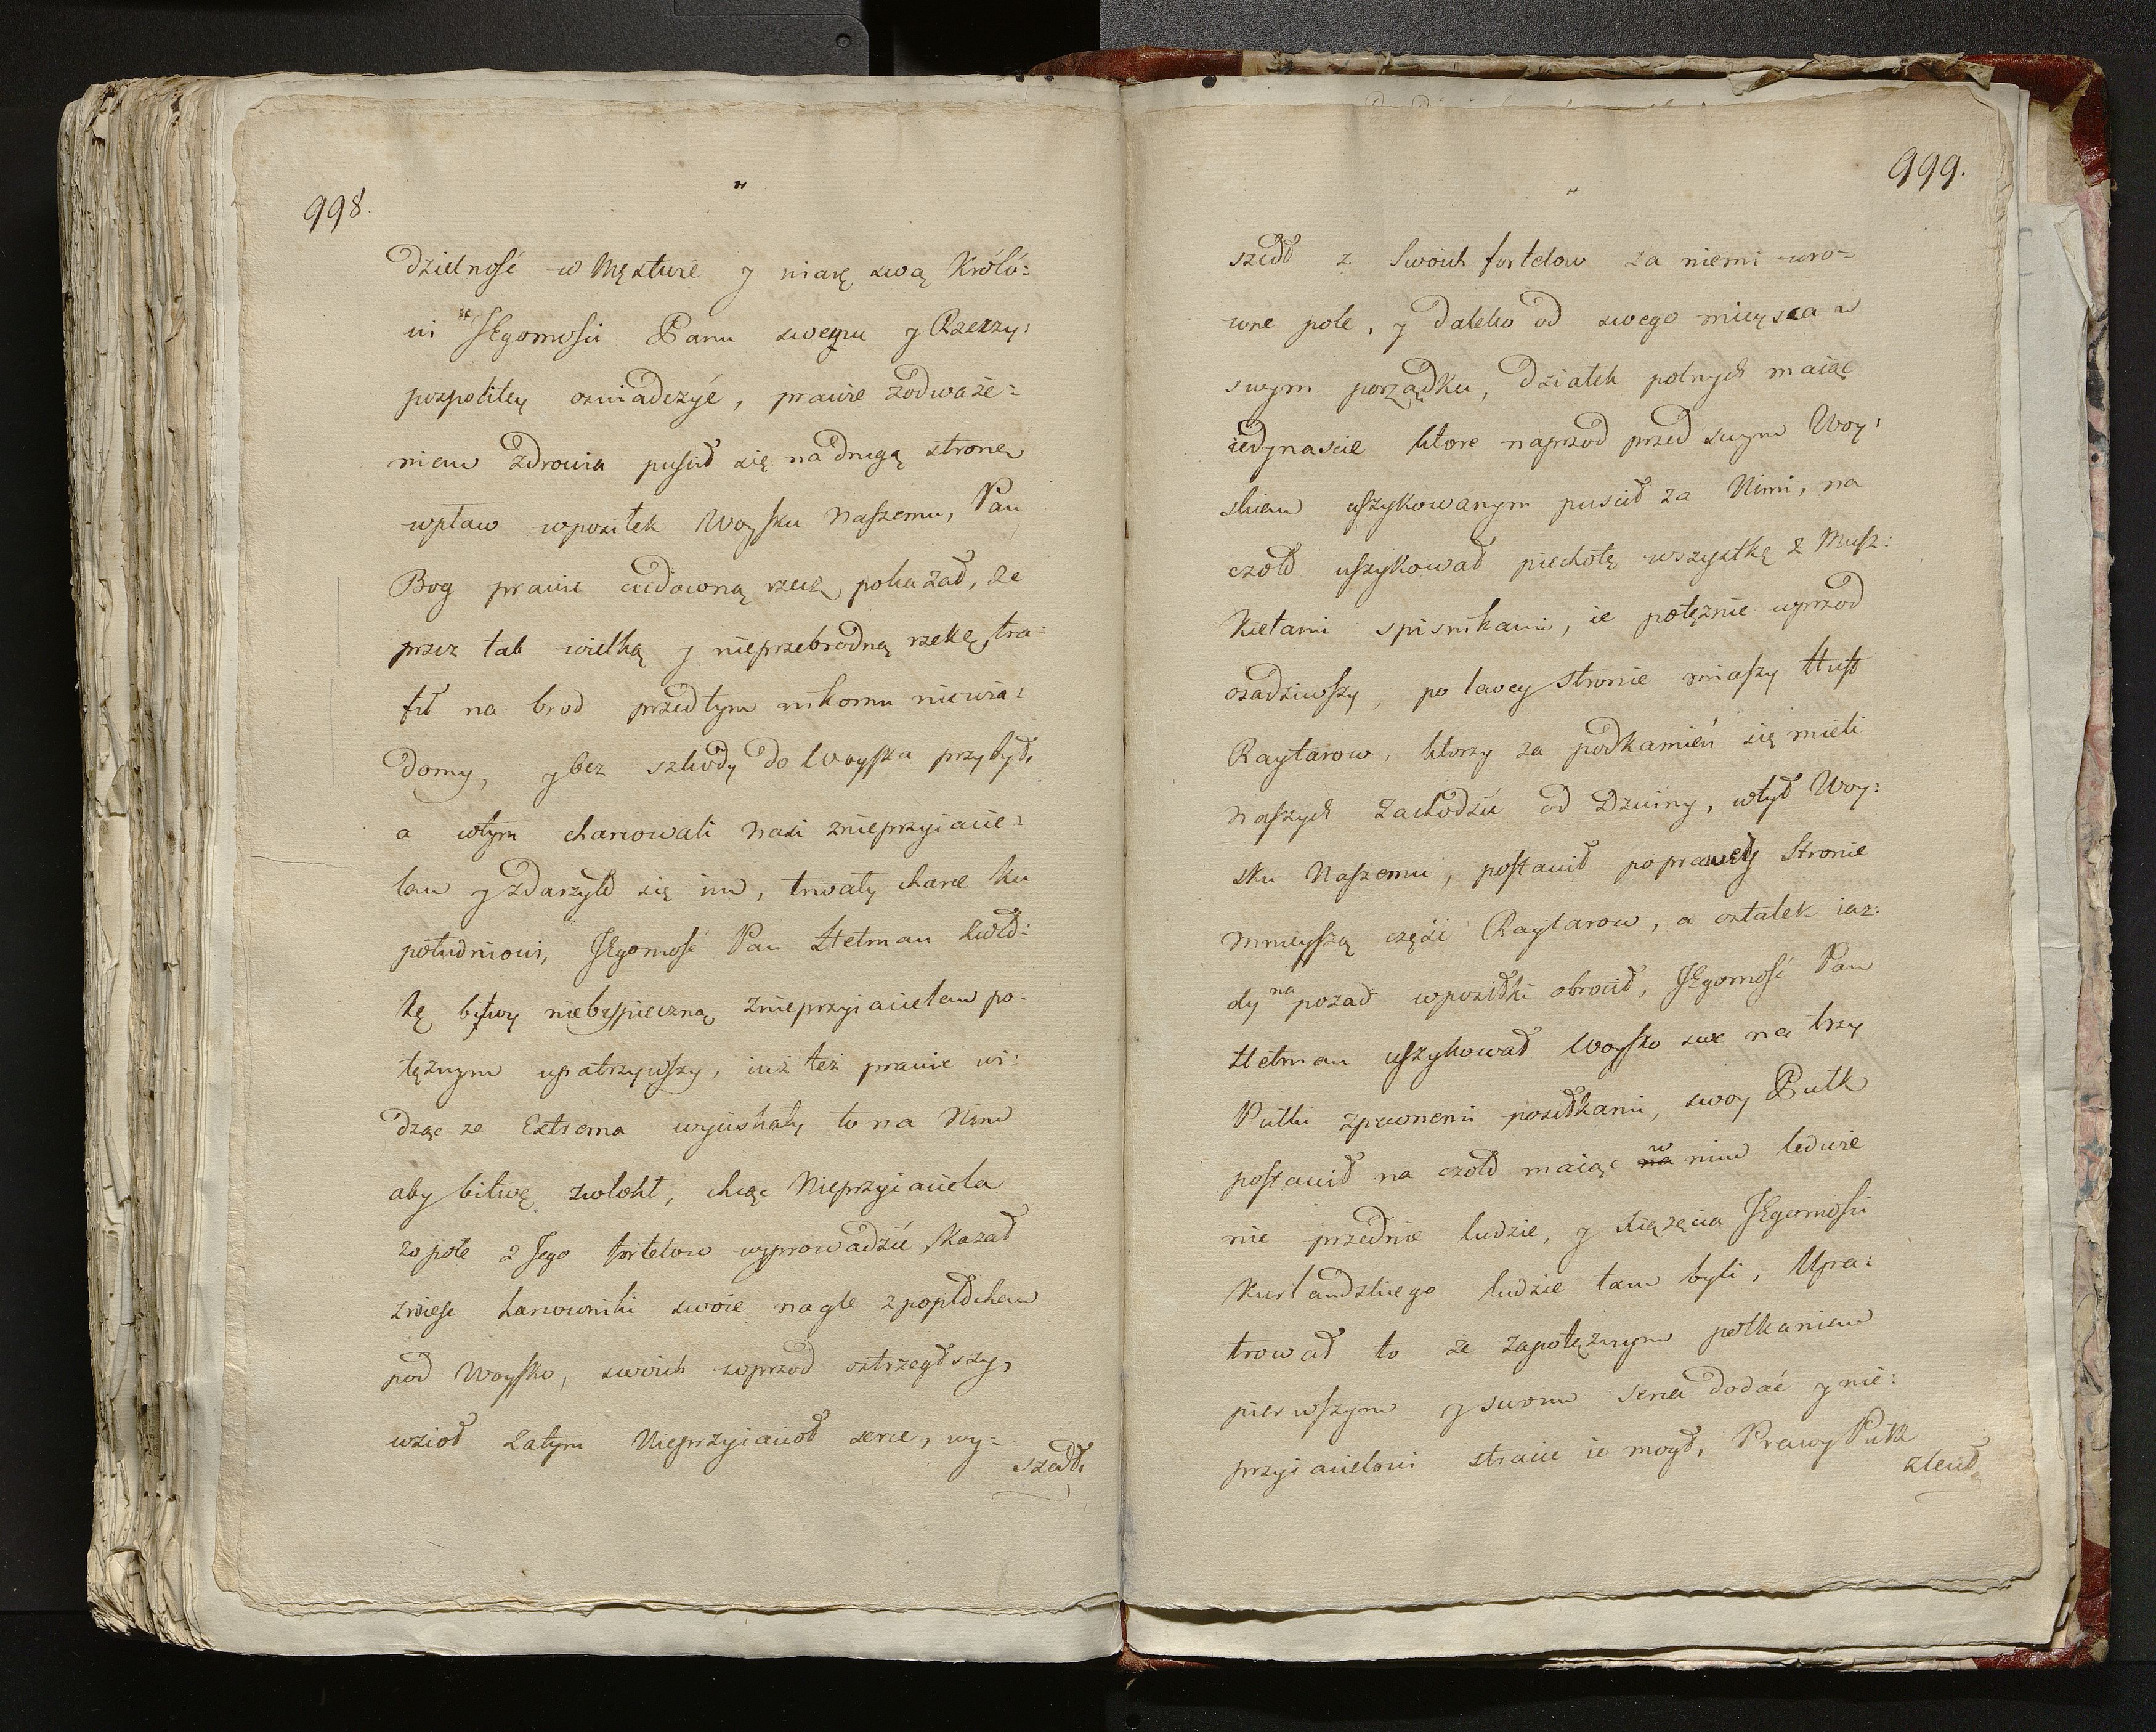 998.
Dzielność w Męstwie y wiarę swą Królo:
wi JEgomości Panu swemu y Rzeczy:
pospolitey oswiadczyć, prawie zodważe:
niem Zdrowia puścił się na drugą stronę
wpław wposiłek Woysku Naszemu, Pan
Bog prawie cudowną rzecz pokazał, ze
przez tak wielką y nieprzebrodną rzekę tra:
fił na brod przedtym nikomu niewia:
domy, y bez szkody do Woyska przybył,
a wtym charcowali Nasi znieprzyiacie:
lem y zdarzyło się im, trwały charce ku
południowi, JEgomość Pan Hetman zwło:
kę bitwy niebespieczną znieprzyiacielem po:
tężnym upatrzywszy, iuż też prawie wi:
dząc ze Extrema wyciskały to na Nim
aby bitwę zwlokł, chcąc Nieprzyiaciela
w pole z Jego fortelow wyprowadzić, kazał
zwieść harcowniki swoie nagle z popłochem
pod Woysko, swoich wprzod ostrzegłszy,
wzioł zatym Nieprzyiacioł serce, wy:
szedł,
999.
szedł z Swoich fortelow za niemi wro:
wne pole, y daleko od swego mieysca w
swym porządku, działek polnych maiąc
iedynaście ktore naprzod przed swym Woy:
skiem uszykowanym puscił za Nimi, na
czoło uszykował piechotę wszystkę z Musz:
kietami spisnikami, ie potężnie wprzod
osadziwszy, po lewey stronie miąszy Huff
Raytarow, ktorzy za podkamień się mieli
Naszych Zachodzić od Dzwiny, wtył Woy:
sku Naszemu, postawił po prawey Stronie
mnieyszą częsc Raytarow, a ostatek iaz:
dy na pozad wposiłki obrocił, JEgomość Pan
Hetman uszykował Woysko swe na trzy
Pułki zpewnemi posiłkami, swoy Pułk
postawił na czoło maiąc w nim ledwie
nie przednie ludzie, y Xiążęcia JEgomości
Kurlandzkiego ludzie tam byli, Upa:
trował to że zapotężnym potkaniem
pierwszym y swoim serca dodać y nie:
przyiacielowi stracic ie mogł, Prawy Pułk
zlecił